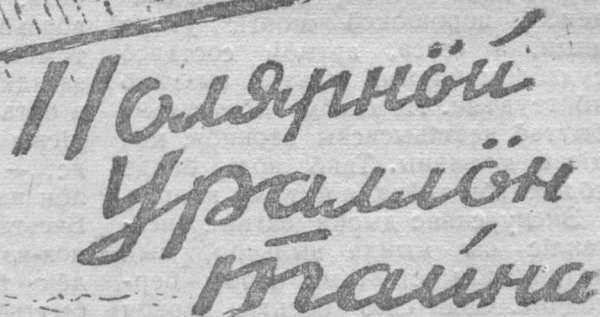 Полярнӧй
Ураллӧн
тайна